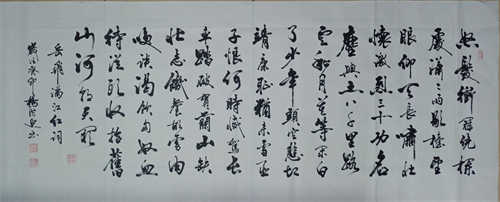 怒髮衝冠憑欄
處瀟瀟雨歇抬望
眼仰天長嘯壯
懷激烈三十功名
塵與土八千里路
雲和月莫等閒白
了少年頭空悲切
靖康恥猶未雪臣
子恨何時滅駕長
車踏破賀蘭山缺
壯志饑餐胡虜肉
笑談渴飲匈奴血
待從頭收拾舊
山河朝天闕
岳飛滿江紅詞
歲次癸卯楊書